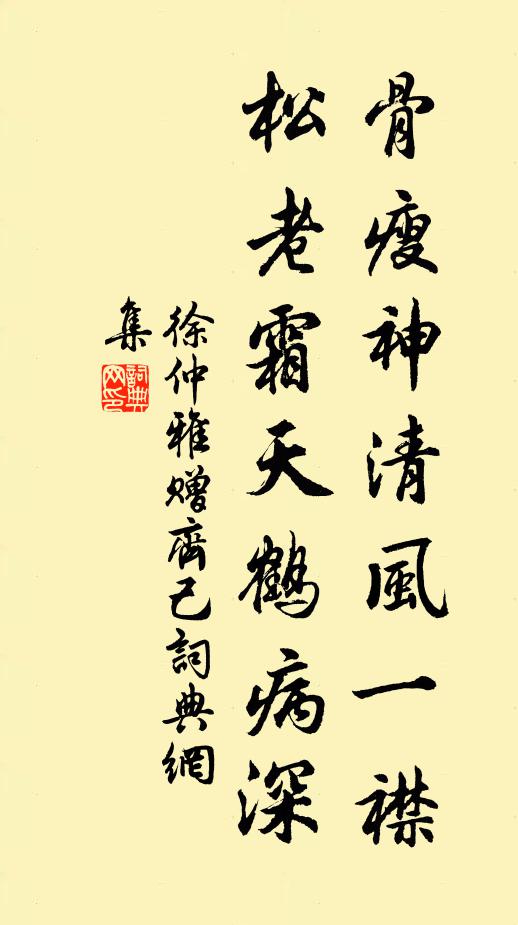 骨瘦神清風一襟
松老霜天鶴病深
徐仲雅贈齊己詞典網
集
詞典
网印